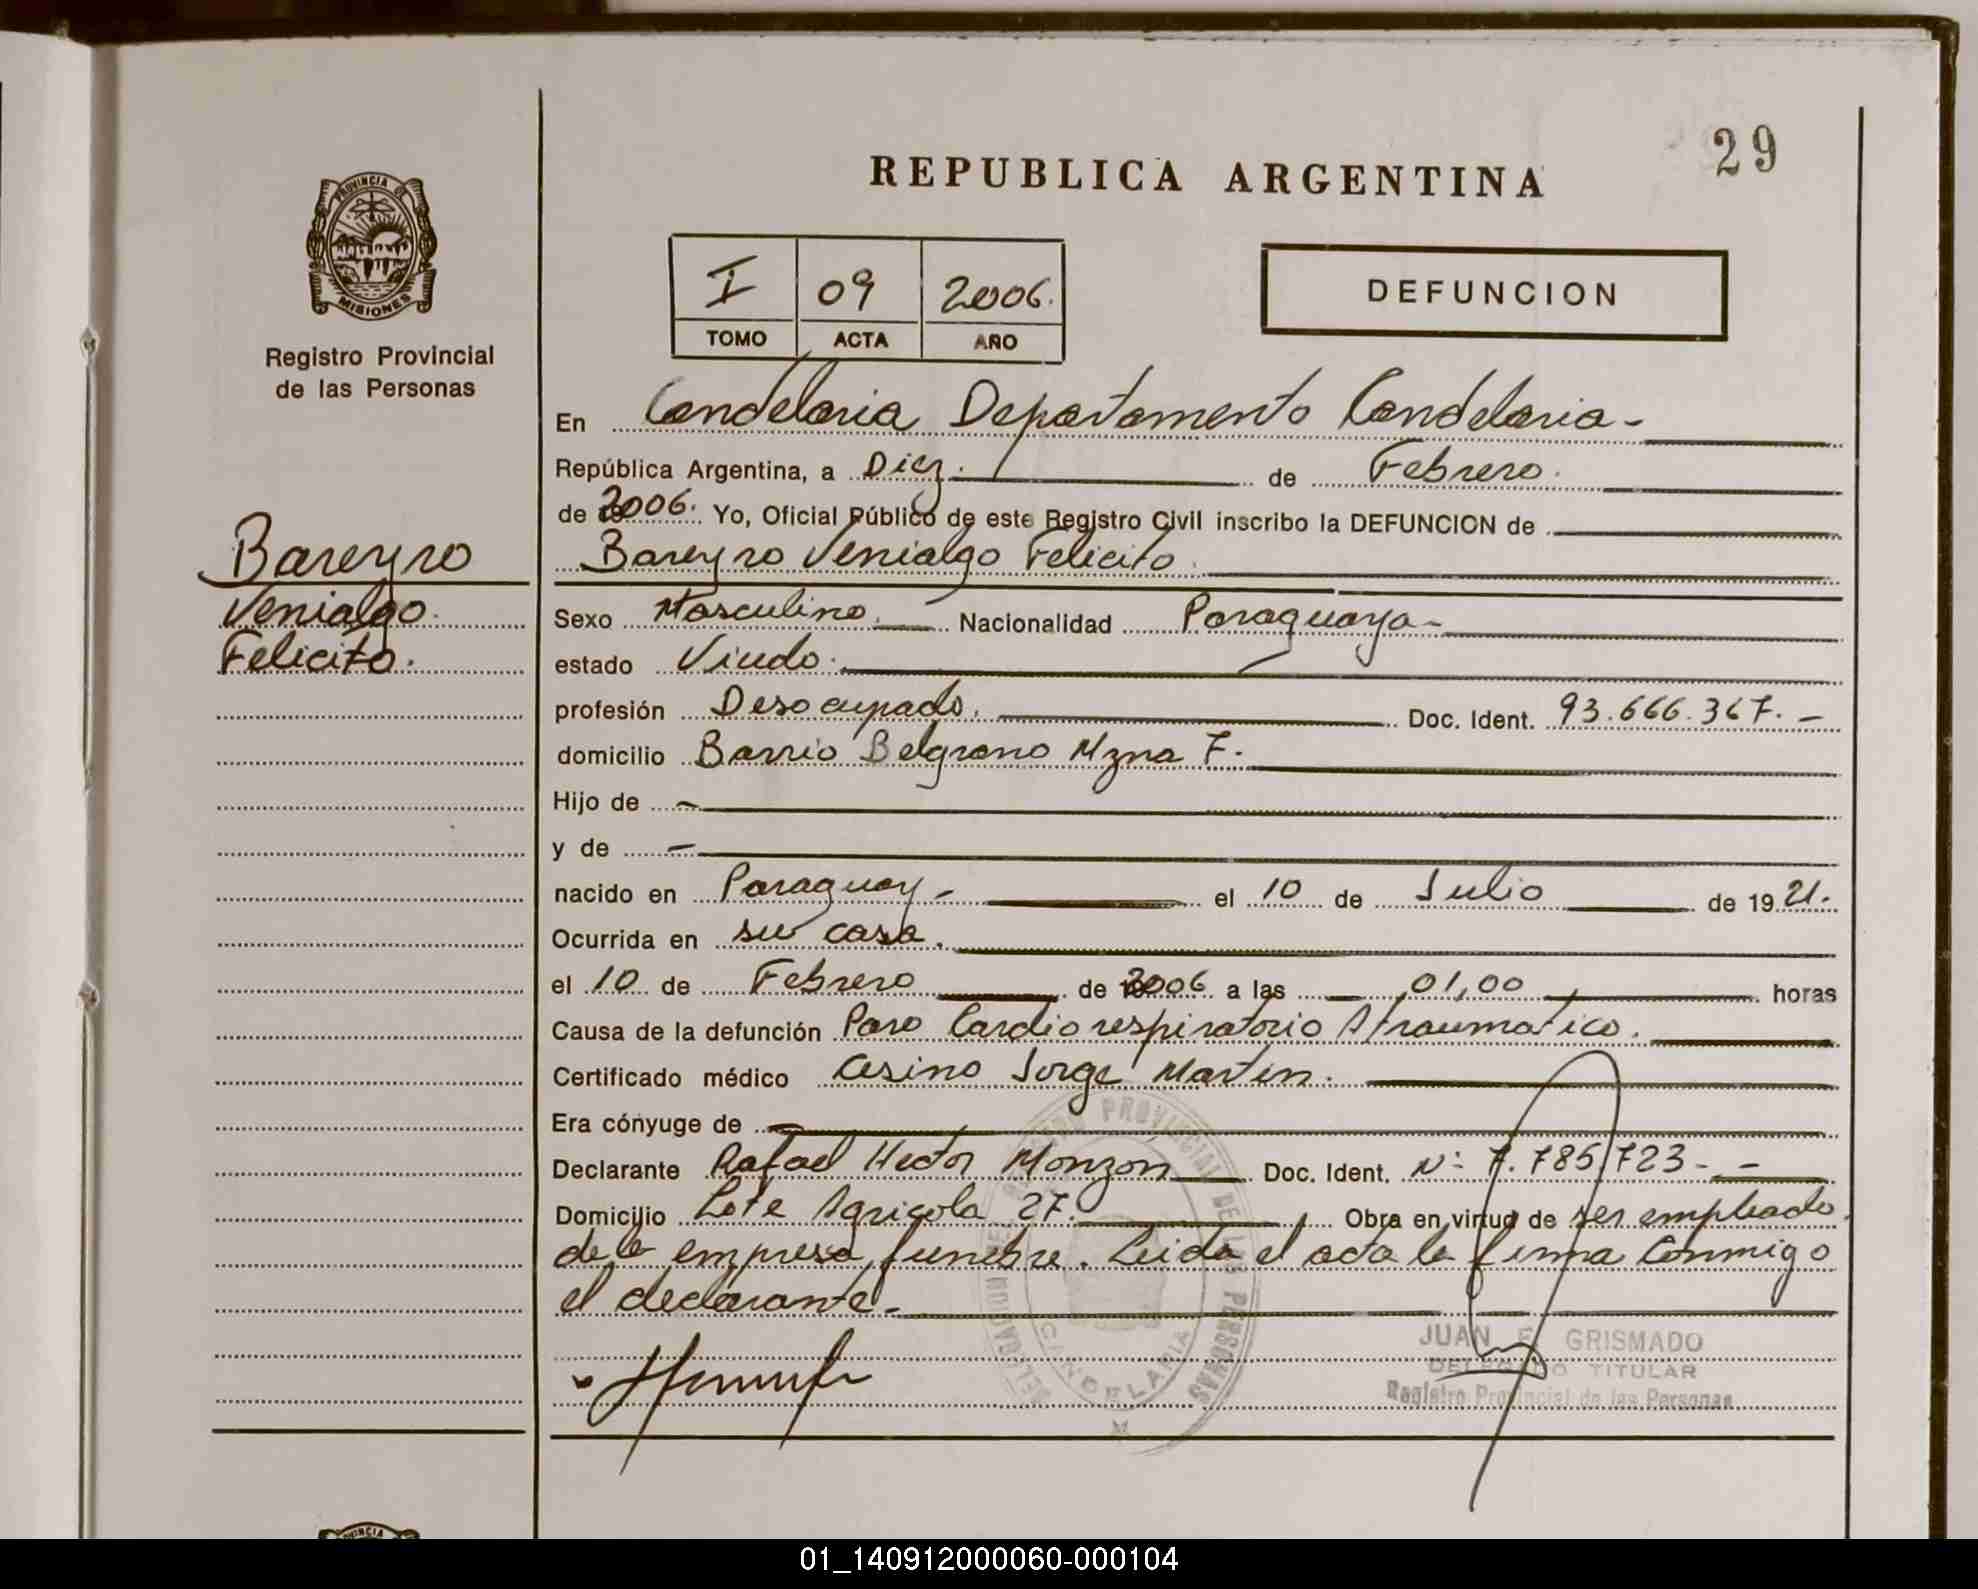 29
REPUBLICA ARGENTINA
PROVINCIA DE
MISIONES
Registro Provincial
de las Personas
I 09 2006.
TOMO ACTA AÑO
DEFUNCION
En Candelaria Departamento Candelaria -
República Argentina, a Diez. de Febrero.
de 2006. Yo, Oficial Público de este Registro Civil inscribo la DEFUNCION de
Bareyro Venialgo Felicito.
Bareyro
Venialgo.
Felicito.
Sexo Masculino. Nacionalidad Paraguaya -
estado Viudo.
profesión Desocupado. Doc. Ident. 93.666.367. -
domicilio Barrio Belgrano Mzna F.
Hijo de -
y de -
nacido en Paraguay - el 10 de Julio de 1921.
Ocurrida en su casa.
el 10 de Febrero de 2006 a las 01,00 horas
Causa de la defunción Paro Cardiorespiratorio Atraumatico.
Certificado médico Cesino Jorge Martin.
Era cónyuge de -
Declarante Rafael Hector Monzón Doc. Ident. Nº 7.785.723 - -
Domicilio Lote Agricola 27. Obra en virtud de ser empleado
de la empresa funebre. Leida el acta la firma Conmigo
el declarante -
REGISTRO PROVINCIAL DE LAS PERSONAS
DELEGACION
CANDELARIA
JUAN E. GRISMADO
DELEGADO TITULAR
Registro Provincial de las Personas
PROVINCIA
01_140912000060-000104